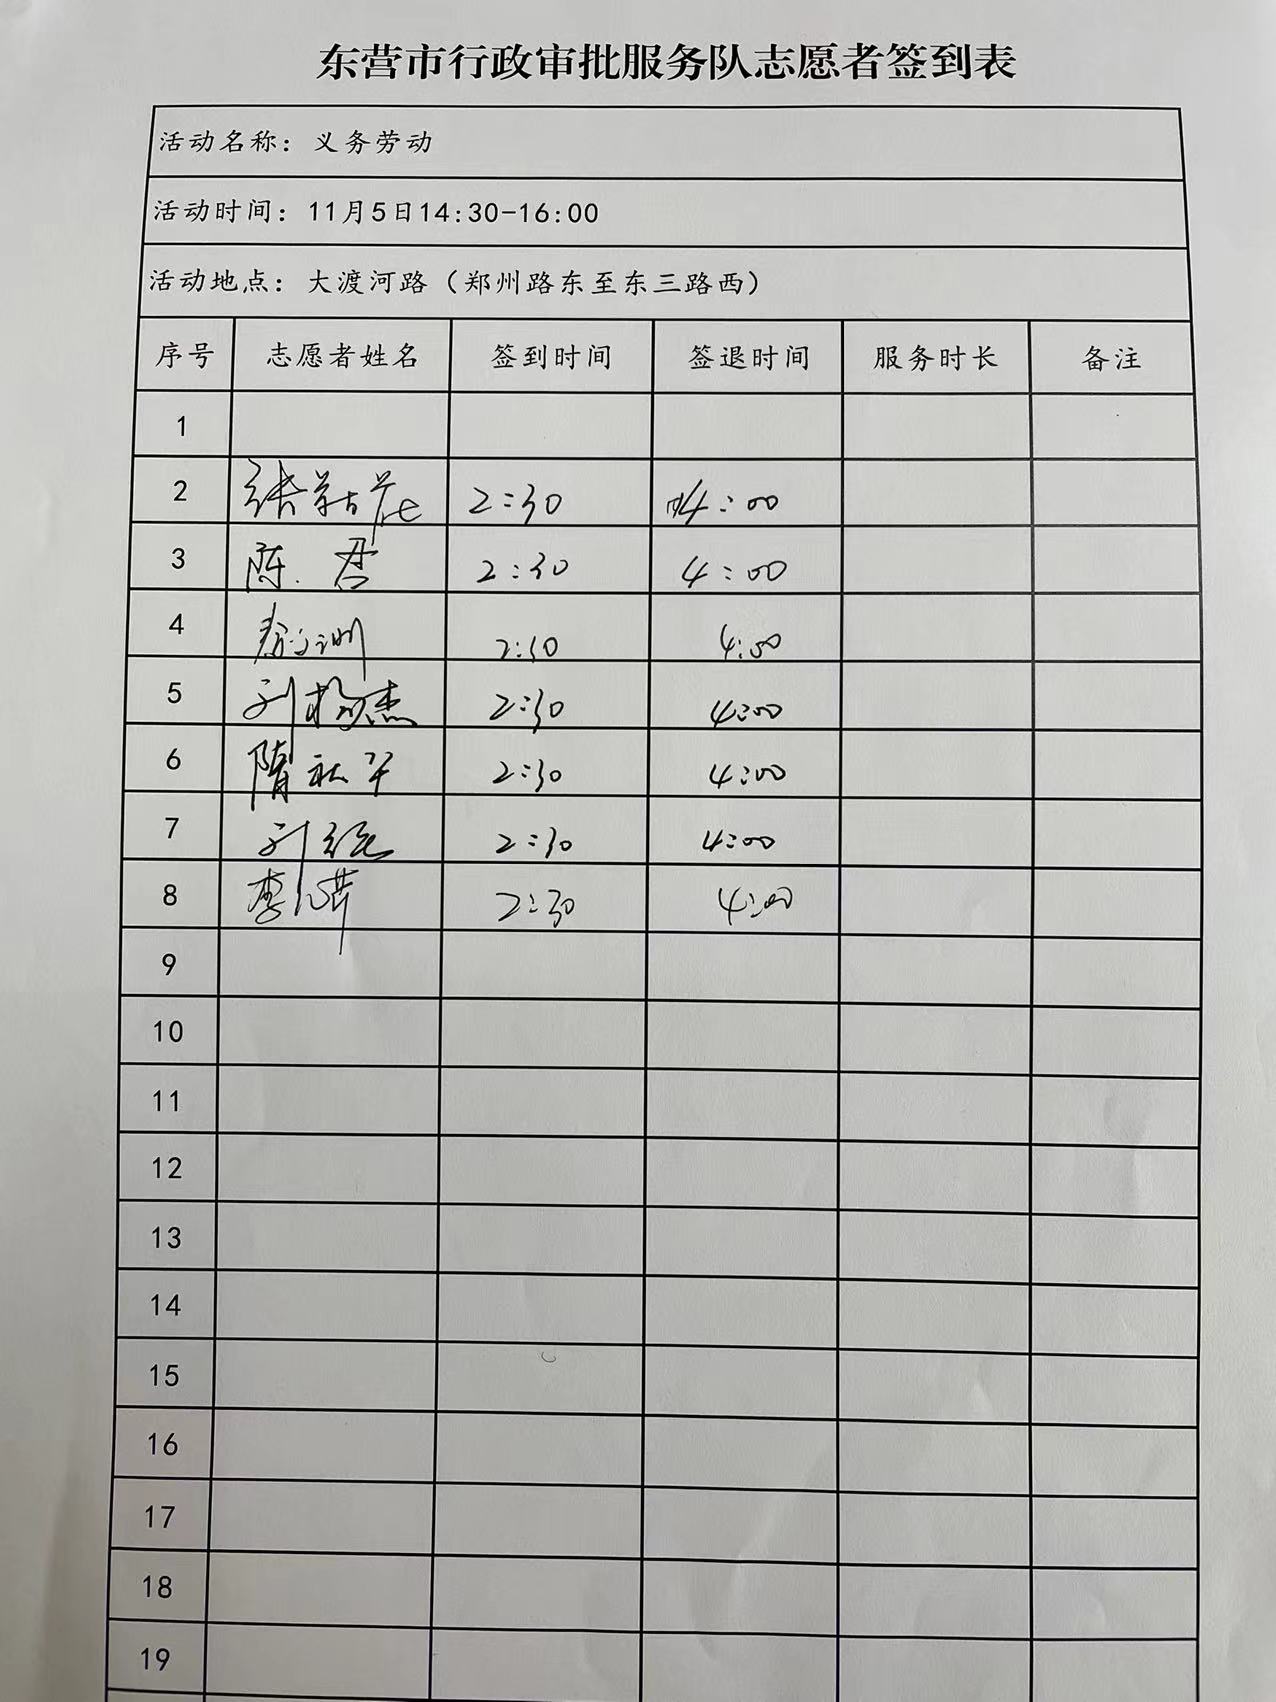 东营市行政审批服务队志愿者签到表
活动名称：义务劳动
活动时间：11月5日14:30-16:00
活动地点：大渡河路（郑州路东至东三路西）
序号 志愿者姓名 签到时间 签退时间 服务时长 备注
1
2 张 2:30 4:00
3 陈君 2:30 4:00
4 2:30 4:00
5 刘杰 2:30 4:00
6 隋 2:30 4:00
7 刘 2:30 4:00
8 李 2:30 4:00
9
10
11
12
13
14
15
16
17
18
19